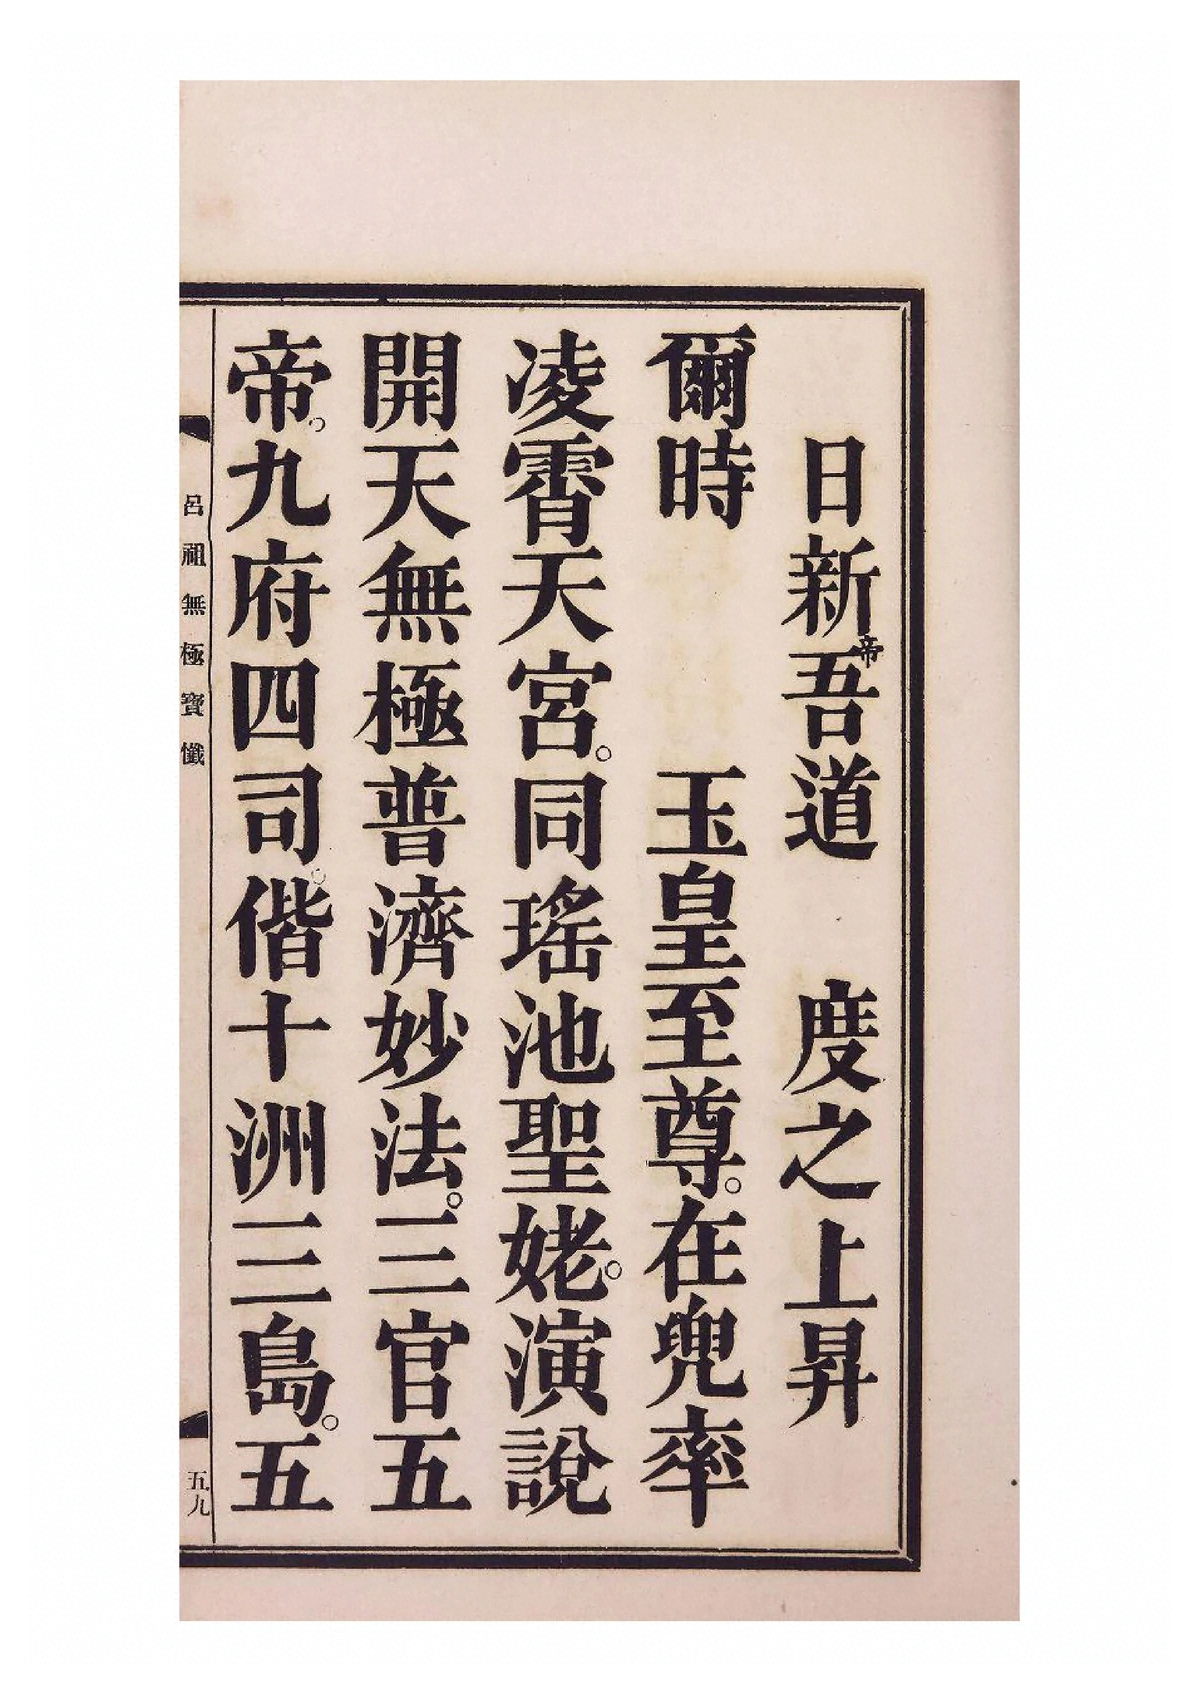 日新吾帝道　度之上昇
爾時　　玉皇至尊。在兜率
凌霄天宮。同瑤池聖姥。演說
開天無極普濟妙法。三官五
帝。九府四司。偕十洲三島。五
呂祖無極寶懺
五九